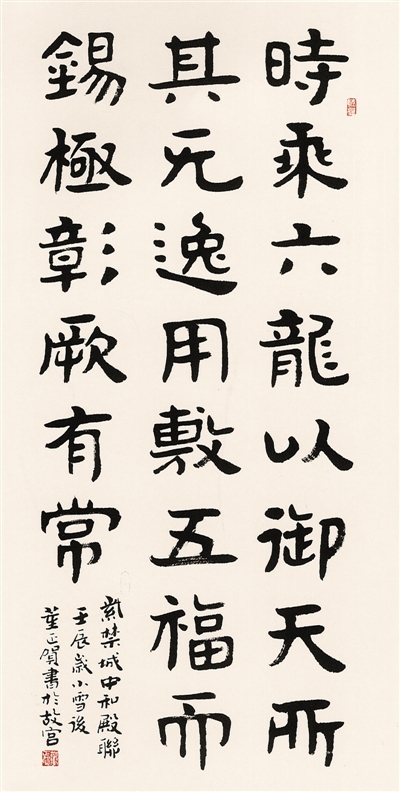 時乘六龍以御天所
其无逸用敷五福而
錫極彰厥有常
紫禁城中和殿聯
壬辰歲小雪後
董正賀書於故宮